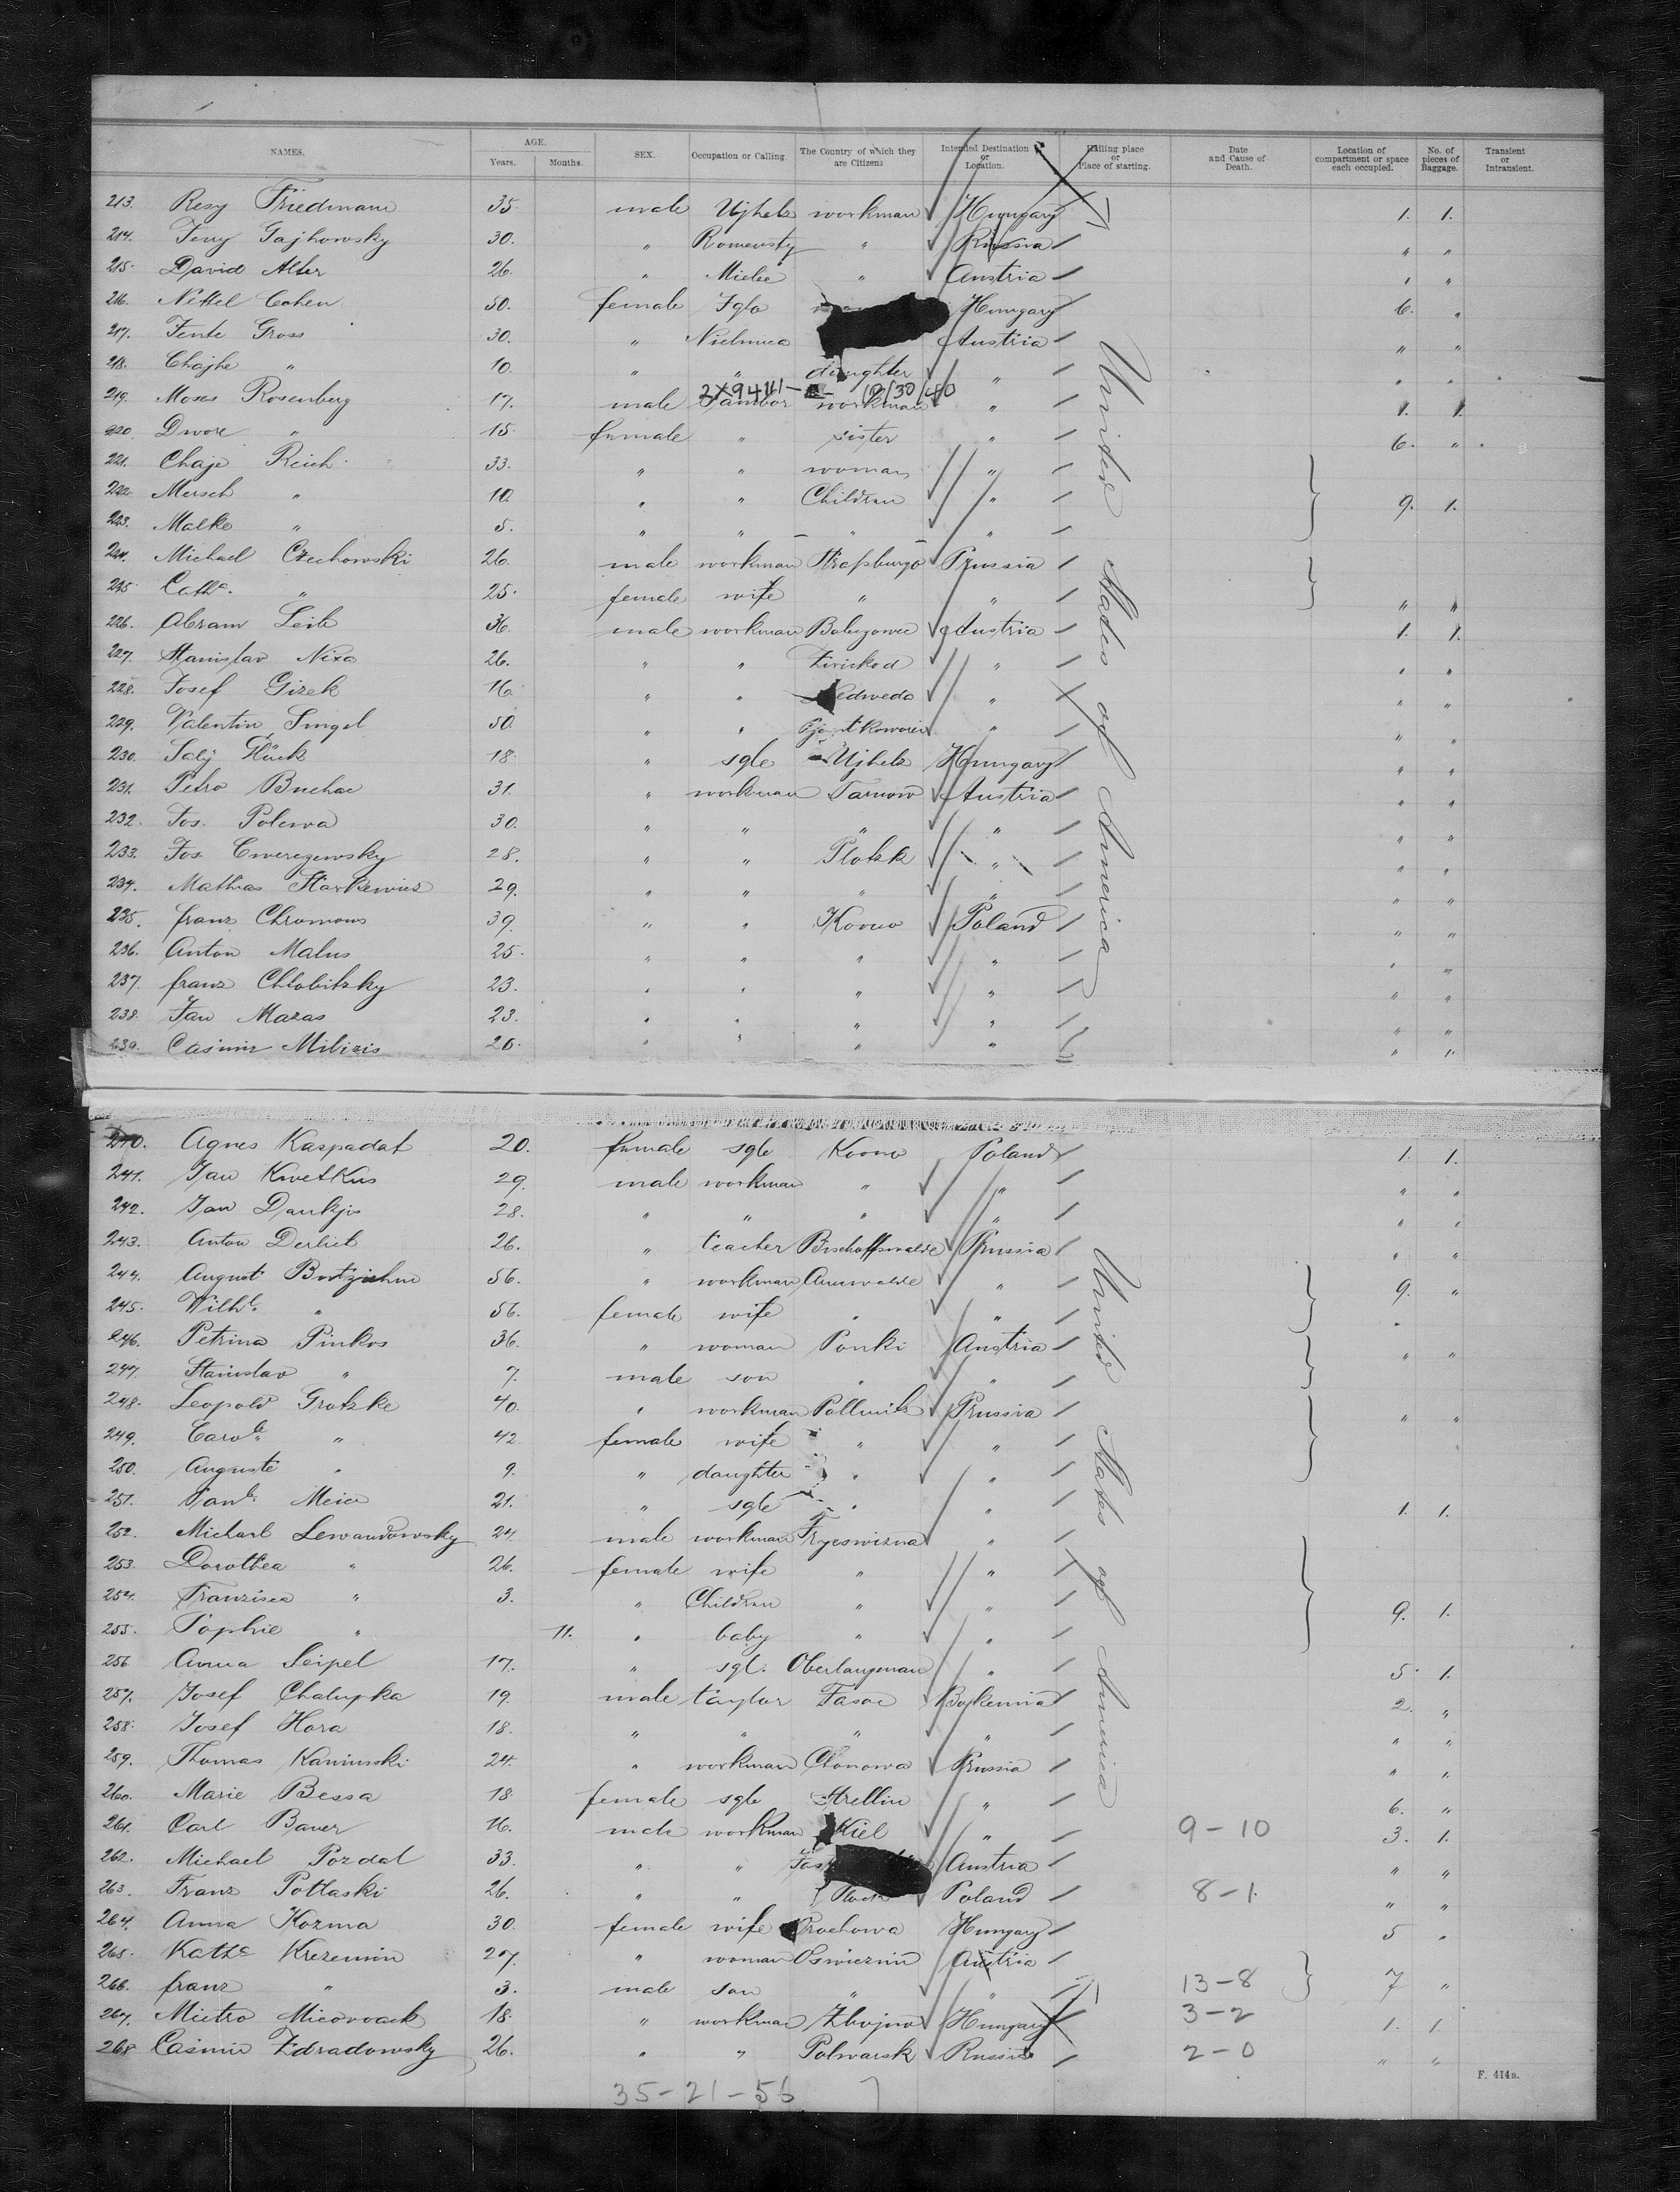 NAMES. AGE. Years. Months. SEX. Occupation or Calling. The Country of which they are Citizens Intended Destination or Location. Hailing place or Place of starting. Date and Cause of Death. Location of compartment or space each occupied. No. of pieces of Baggage. Transient or Intransient.
213. Resy Friedmann 35 male Ujhels workman Hungary 1. 1.
214. 30. " Romensty " Russia " "
215. David Alter 26. " Mielec " Austria " "
216. Nettel Cohen 50. female Iglo Hungary 6. "
217. Gross 30. " Austria " "
218. Chajhe " 10. " " daughter " " "
2X94111- 10/30/40
219. Moses Rosenberg 17. male Sambor workman " 1. 1.
220. Dwore " 15. female " sister " 6. "
221. Chaje Reich 33. " " woman "
222. Mersch " 10. " " Children " 9. 1.
223. Malke " 5. " " " "
224. Michael Czechowski 26. male workman Strapburgo Prussia
225. Cathe. " 25. female wife " " " "
226. Abram Leib 36. male workman Austria 1. 1.
227. Stanislav Nixa 26. " " " " "
228. Josef Gizek 16. " " " " "
229. Valentin Singel 50. " " " " "
230. Saly Glück 18. " sgle Ujhels Hungary " "
231. Petro Buchac 31. " workman Tarnow Austria " "
232. Jos. Polewa 30. " " " " " "
233. Jos. 28. " " Plotzk " " "
234. Mathias Starkewicz 29. " " " " " "
235. franz Chromows 39. " " Kovno Poland " "
236. Anton Malus 25. " " " " " "
237. franz Chlobitzky 23. " " " " " "
238. Jan Mazas 23. " " " " " "
239. Casimir Milizis 26. " " " " " 1.
United States of America
240. Agnes Kaspadat 20. female sgle Kovno Poland 1. 1.
241. Jan Kwetkus 29. male workman " " " "
242. Jan Dankjis 28. " " " " " "
243. Anton Derbiet 26. " teacher Bischoffswalde Prussia " "
244. August 56. " workman Arnswalde " 9. "
245. Wilhe. " 56. female wife " " "
246. Petrina Pinkos 36. " woman Ponki Austria " "
247. Stanislav " 7. male son " "
248. Leopold Grotzke 40. " workman Pollnitz Prussia " "
249. Carole. " 42 female wife " "
250. Auguste " 9. " daughter " "
251. Meier 21. " sgle " " 1. 1.
252. Michael Lewandowsky 24. male workman "
253. Dorothea " 26. female wife " "
254. Franzisca " 3. " Children " " 9. 1.
255. Sophie " 11. " baby " "
256 Anna Seipel 17. " sgl. Oberlangenau " 5. 1.
257. Josef Chalupka 19. male taylor Tasoc 2. "
258. Josef Hora 18. " " " " " "
259. Thomas Kaminski 24. " workman Chonowa Prussia " "
260. Marie Bessa 18. female sgle Strellin " 6. "
261. Carl Bauer 16. male workman Kiel " 9-10 3. 1.
262. Michael Pozdal 33. " " Austria " "
263. Franz Potlaski 26. " " Plock Poland 8-1. " "
264. Anna Kozma 30. female wife Hungary 5 "
265. Kathe Krezemin 27. " woman Oswiezim Austria
266. franz " 3. male son " " 13-8 7 "
267. Mietro 18. " workman Zbojno Hungary 3-2 1. 1.
268 Casimir Zdradowsky 26. " " Polwarsk Russia 2-0 " "
United States of America
F. 414a.
35-21-56